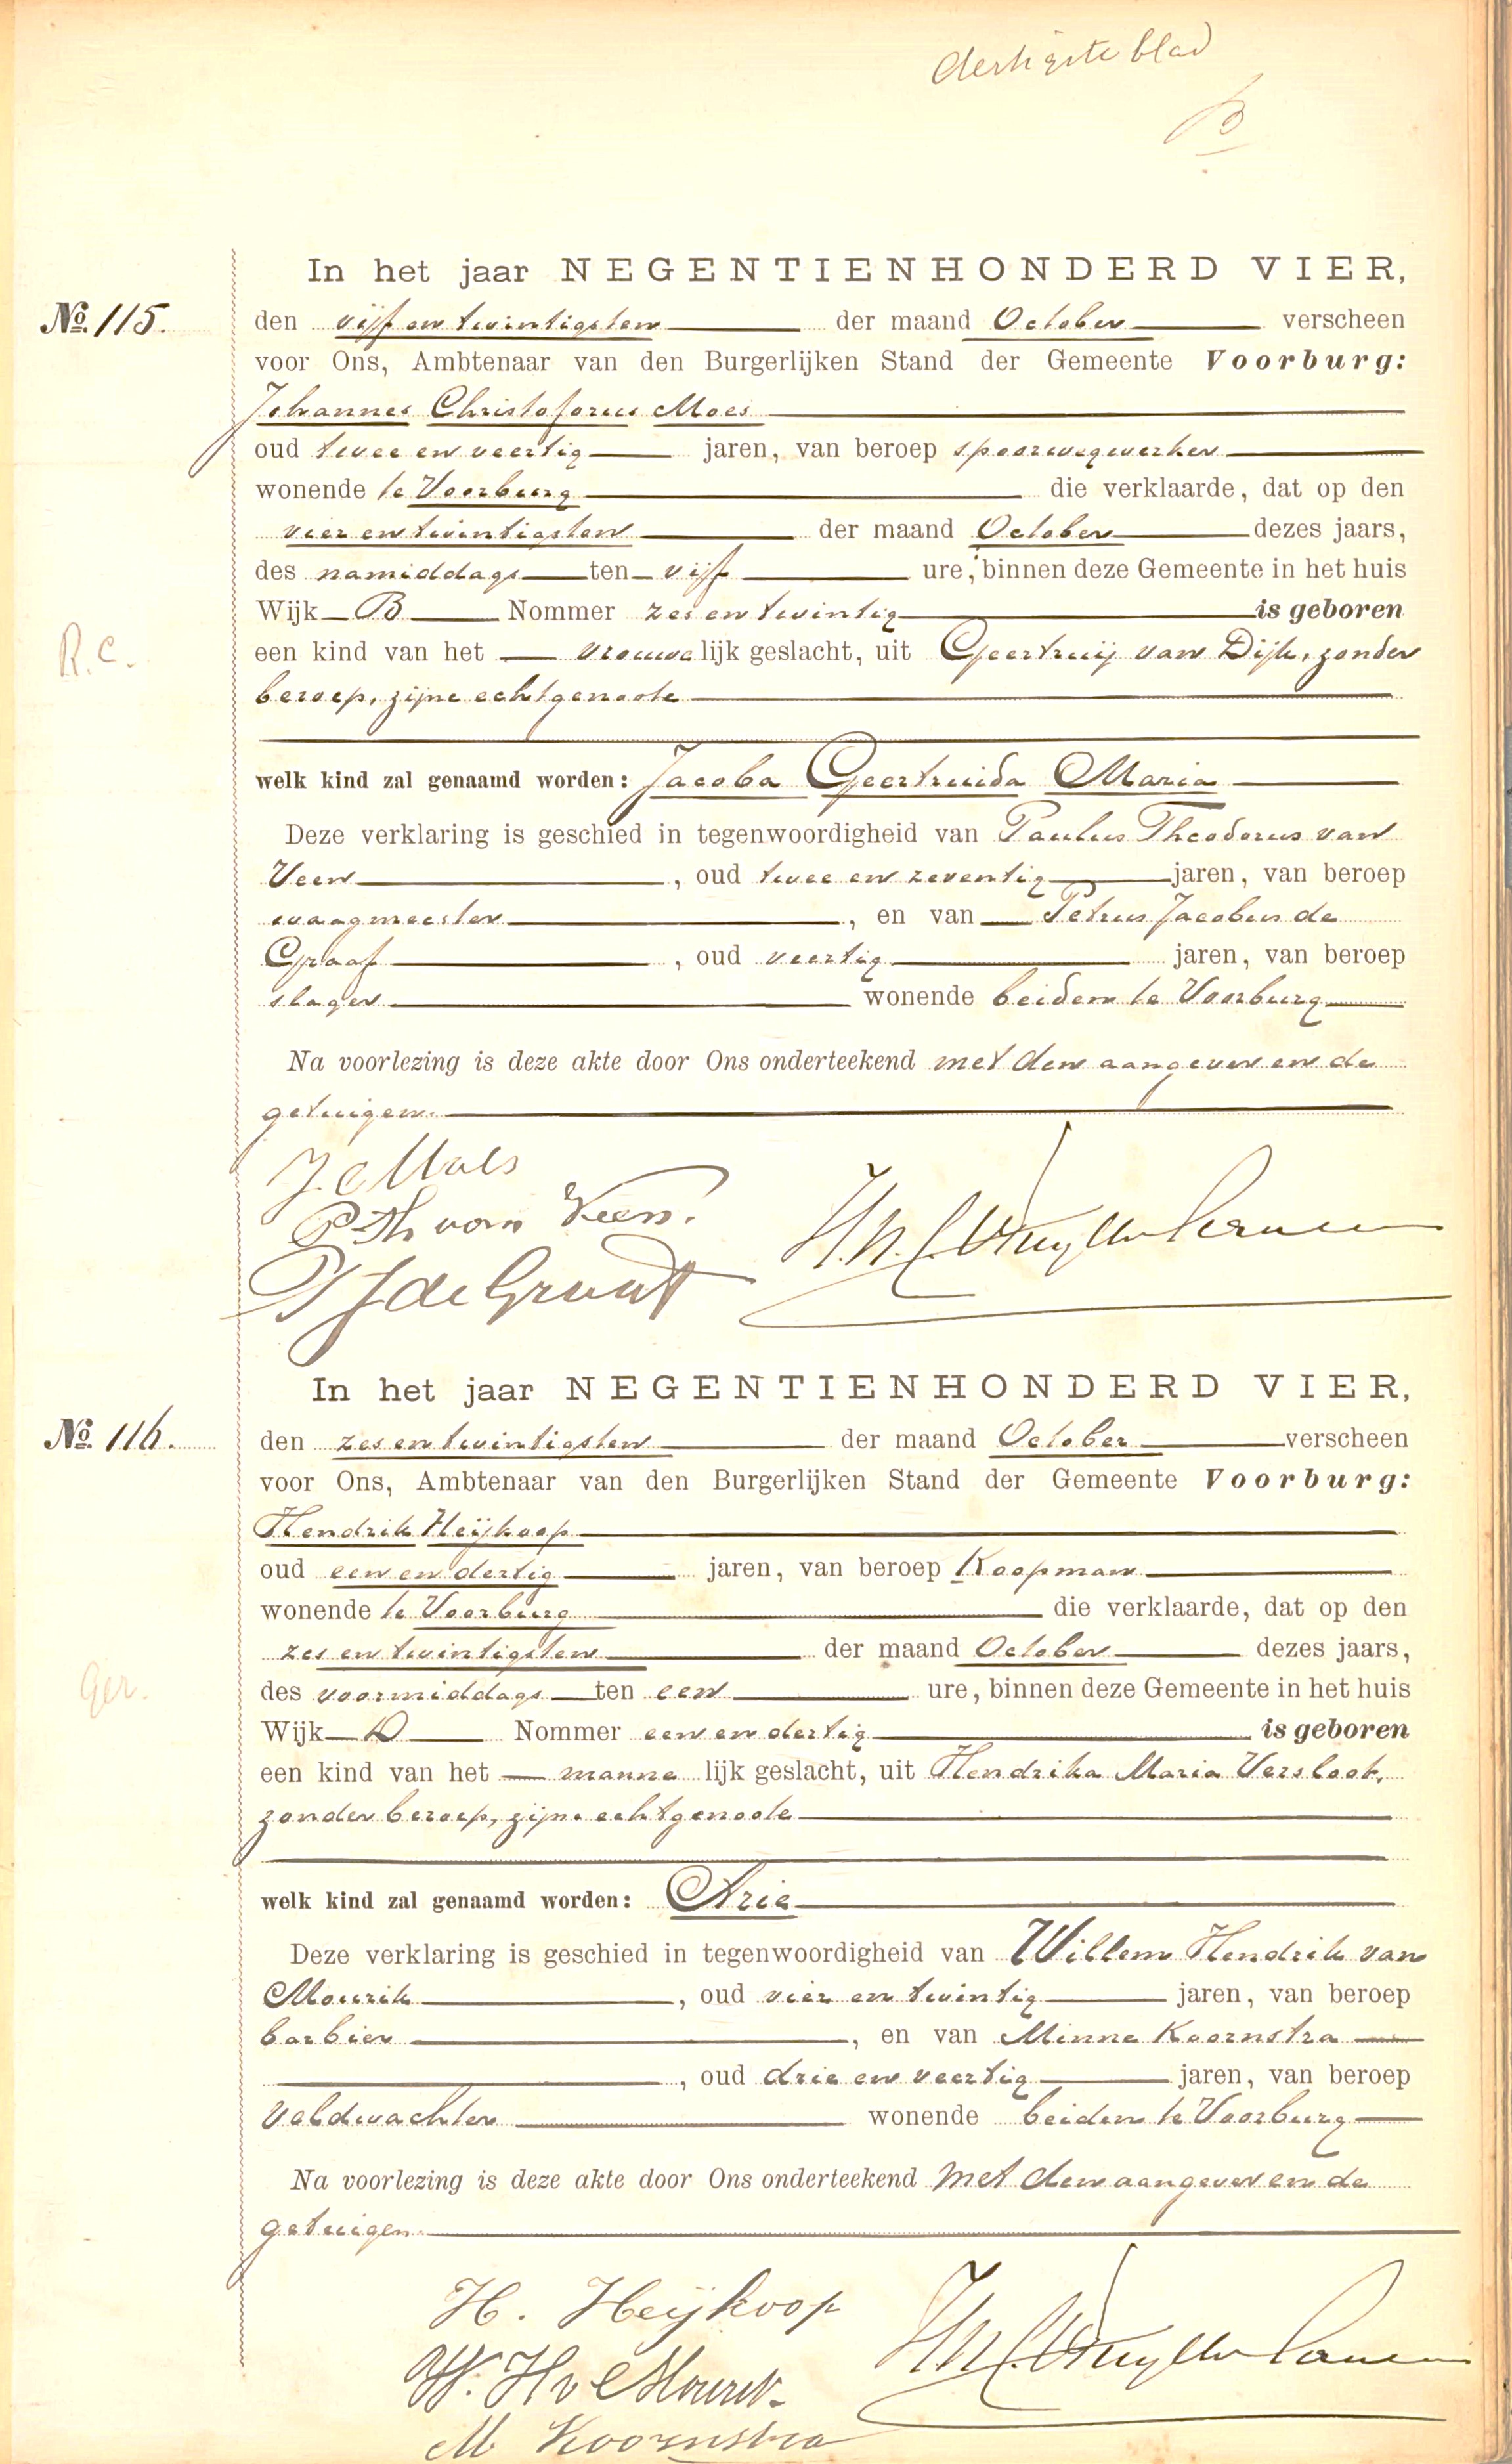 dertigste blad
B
In het jaar NEGENTIENHONDERD VIER,
No. 115.
den vijf en twintigsten der maand October verscheen
voor Ons, Ambtenaar van den Burgerlijken Stand der Gemeente Voorburg:
Johannes Christoforus Moes
oud twee en veertig jaren, van beroep spoorwegwerker
wonende te Voorburg die verklaarde, dat op den
vier en twintigsten der maand October dezes jaars,
des namiddags ten vijf ure, binnen deze Gemeente in het huis
Wijk B Nommer zes en twintig is geboren
R.C.
een kind van het vrouwelijk geslacht, uit Geertruij van Dijk, zonder
beroep, zijne echtgenoote
welk kind zal genaamd worden: Jacoba Geertruida Maria
Deze verklaring is geschied in tegenwoordigheid van Paulus Theodorus van
Veen, oud twee en zeventig jaren, van beroep
waagmeester, en van Petrus Jacobus de
Graaf, oud veertig jaren, van beroep
slager wonende beiden te Voorburg
Na voorlezing is deze akte door Ons onderteekend met den aangever en de
getuigen.
J. C Moes
P Th van Veen.
P J de Graaf
In het jaar NEGENTIENHONDERD VIER,
No. 116.
den zes en twintigsten der maand October verscheen
voor Ons, Ambtenaar van den Burgerlijken Stand der Gemeente Voorburg:
Hendrik Heijkoop
oud een en dertig jaren, van beroep Koopman
wonende te Voorburg die verklaarde, dat op den
zes en twintigsten der maand October dezes jaars,
Ger.
des voormiddags ten een ure, binnen deze Gemeente in het huis
Wijk D Nommer een en dertig is geboren
een kind van het mannelijk geslacht, uit Hendrika Maria Versloot,
zonder beroep, zijne echtgenoote
welk kind zal genaamd worden: Arie
Deze verklaring is geschied in tegenwoordigheid van Willem Hendrik van
Mourik, oud vier en twintig jaren, van beroep
barbier, en van Minne Koornstra
, oud drie en veertig jaren, van beroep
Veldwachter wonende beiden te Voorburg
Na voorlezing is deze akte door Ons onderteekend met den aangever en de
getuigen.
H. Heijkoop
W. H v Mourik
M Koornstra